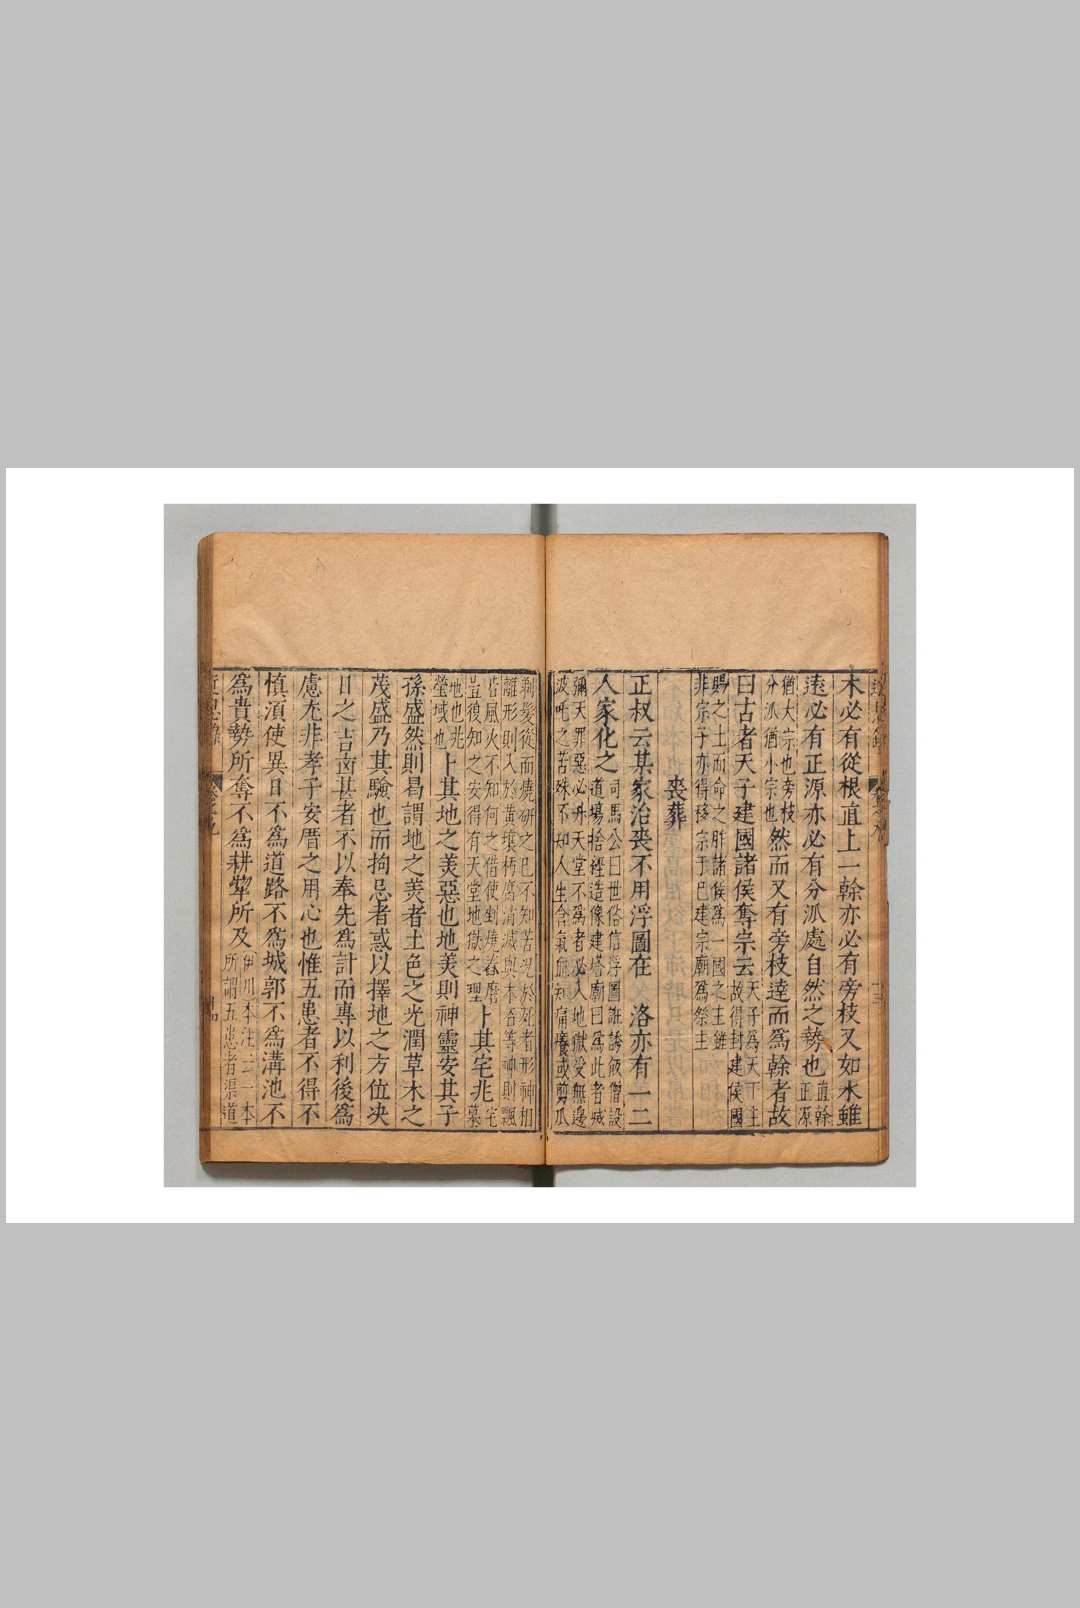 木必有從根直上一榦亦必有旁枝又如水雖
遠必有正源亦必有分派處自然之勢也直榦正源
猶大宗也旁枝分派猶小宗也然而又有旁枝達而爲榦者故
曰古者天子建國諸侯奪宗云天子爲天下主故得封建侯國
賜之土而命之胙諸侯爲一國之主雖
非宗子亦得移宗于己建宗廟爲祭主
喪葬
正叔云某家治喪不用浮圖在洛亦有一二
人家化之司馬公曰世俗信浮圖誑誘飯僧設道場捨經造像建塔廟曰爲此者滅
彌天罪惡必升天堂不爲者必入地獄受無邊
波吒之苦殊不知人生含氣血知痛癢或剪爪
剃髮從而燒斫之已不知苦况於死者形神相
離形則入於黄壤朽腐消滅與木石等神則飄
若風火不知何之借使剉燒舂磨豈復知之安得有天堂地獄之理卜其宅兆宅墓
地也兆塋域也卜其地之美惡也地美則神靈安其子
孫盛然則曷謂地之美者土色之光潤草木之
茂盛乃其驗也而拘忌者惑以擇地之方位决
日之吉凶甚者不以奉先爲計而專以利後爲
慮尤非孝子安厝之用心也惟五患者不得不
慎須使異日不爲道路不爲城郭不爲溝池不
爲貴勢所奪不爲耕犂所及伊川本注云一本所謂五患者渠道
近思錄